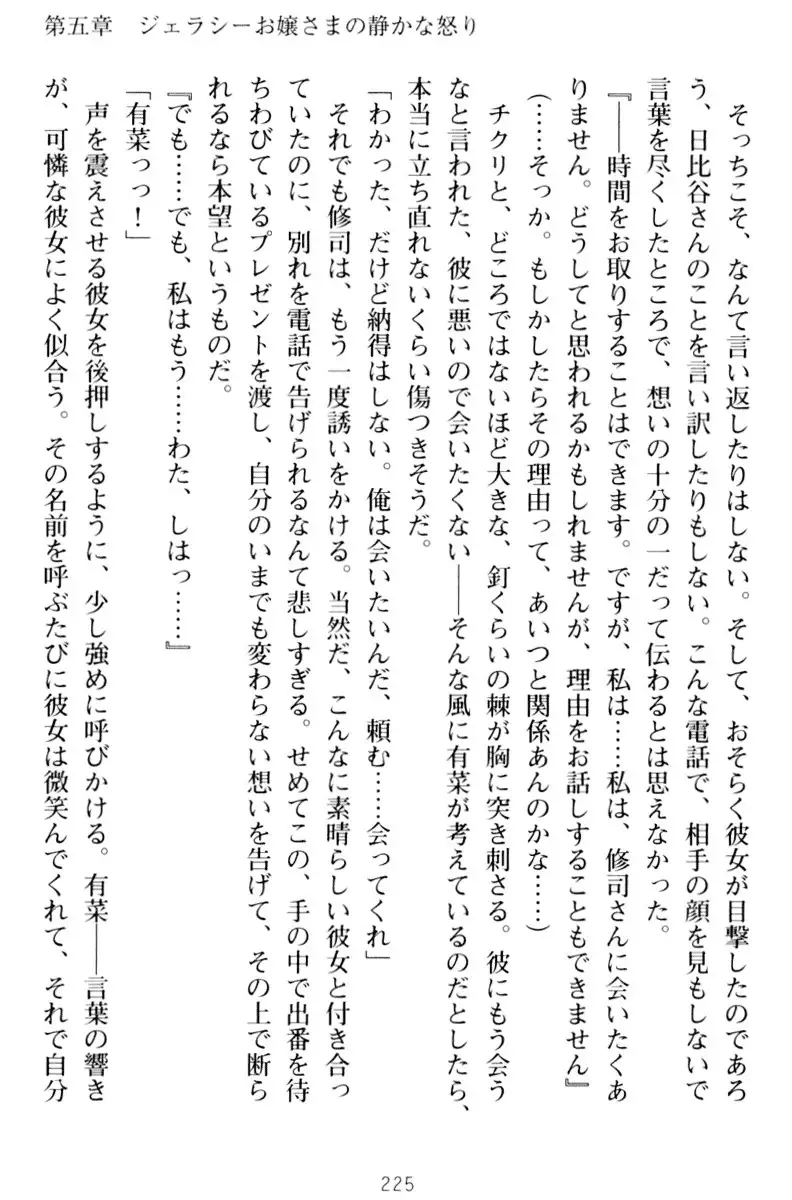 第五章　ジェラシーお嬢さまの静かな怒り
　そっちこそ、なんて言い返したりはしない。そして、おそらく彼女が目撃したのであろ
う、日比谷さんのことを言い訳したりもしない。こんな電話で、相手の顔を見もしないで
言葉を尽くしたところで、想いの十分の一だって伝わるとは思えなかった。
『――時間をお取りすることはできます。ですが、私は……私は、修司さんに会いたくあ
りません。どうしてと思われるかもしれませんが、理由をお話しすることもできません』
（……そっか。もしかしたらその理由って、あいつと関係あんのかな……）
　チクリと、どころではないほど大きな、釘くらいの棘が胸に突き刺さる。彼にもう会う
なと言われた、彼に悪いので会いたくない――そんな風に有菜が考えているのだとしたら、
本当に立ち直れないくらい傷つきそうだ。
「わかった、だけど納得はしない。俺は会いたいんだ、頼む……会ってくれ」
　それでも修司は、もう一度誘いをかける。当然だ、こんなに素晴らしい彼女と付き合っ
ていたのに、別れを電話で告げられるなんて悲しすぎる。せめてこの、手の中で出番を待
ちわびているプレゼントを渡し、自分のいまでも変わらない想いを告げて、その上で断ら
れるなら本望というものだ。
『でも……でも、私はもう……わた、しはっ……』
「有菜っっ！」
　声を震えさせる彼女を後押しするように、少し強めに呼びかける。有菜――言葉の響き
が、可憐な彼女によく似合う。その名前を呼ぶたびに彼女は微笑んでくれて、それで自分
225